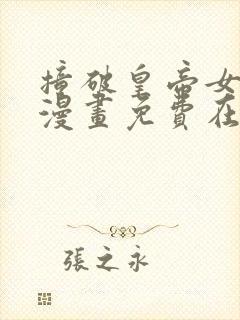 撞破皇帝女
漫畫免費在
張之永